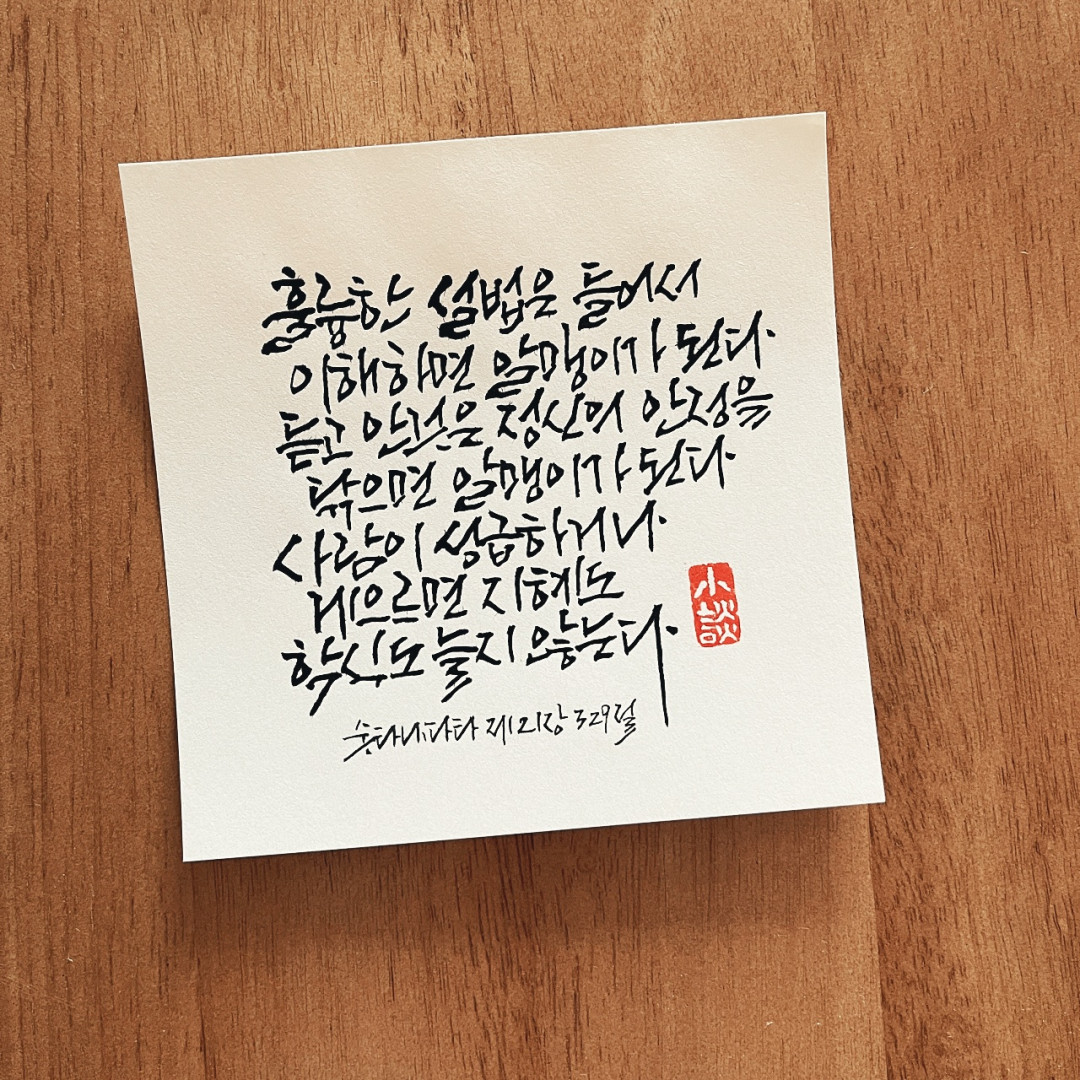 훌륭한 설법은 들어서
이해하면 알맹이가 된다.
듣고 안 것은 정신의 안정을
닦으면 알맹이가 된다
사람이 성급하거나
게으르면 지혜도
학식도 늘지 않는다.
小談
숫타니파타 제121장 329절